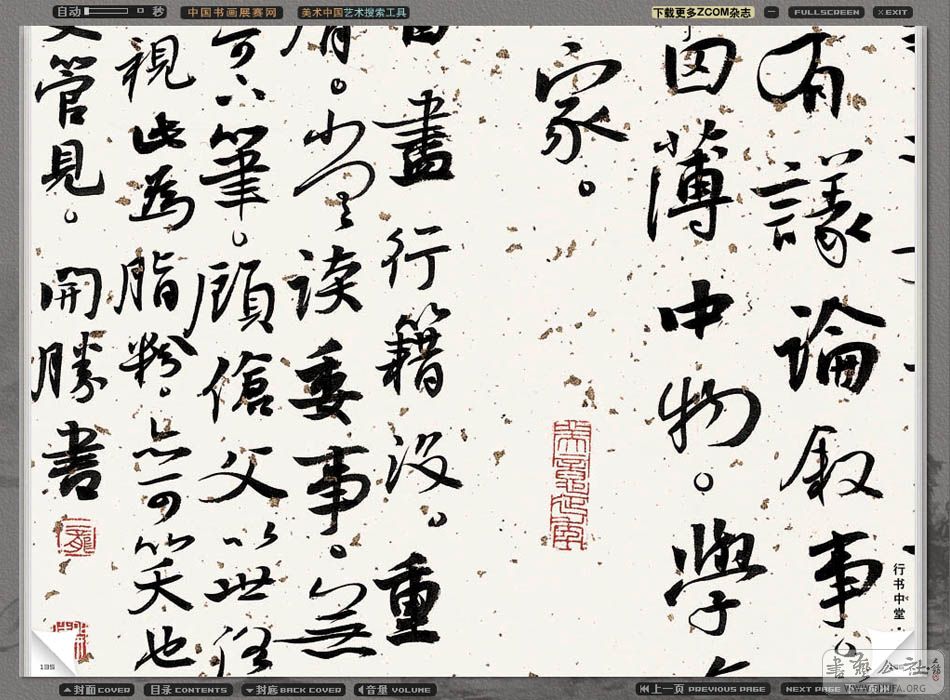 自动 秒
中国书画展赛网
美术中国艺术搜索工具
下载更多ZCOM杂志
FULLSCREEN
×EXIT
有議論叙事。
薄中物。學
家。
盡行籍没。重
读委事。無
可下筆。顧傖父以世俗
視此為脂粉。亦可笑也
管見。開勝書
行书中堂
135
封面 COVER
目录 CONTENTS
封底 BACK COVER
音量 VOLUME
上一页 PREVIOUS PAGE
NEXT PAGE
书艺公社
WWW.CHJFA.ORG